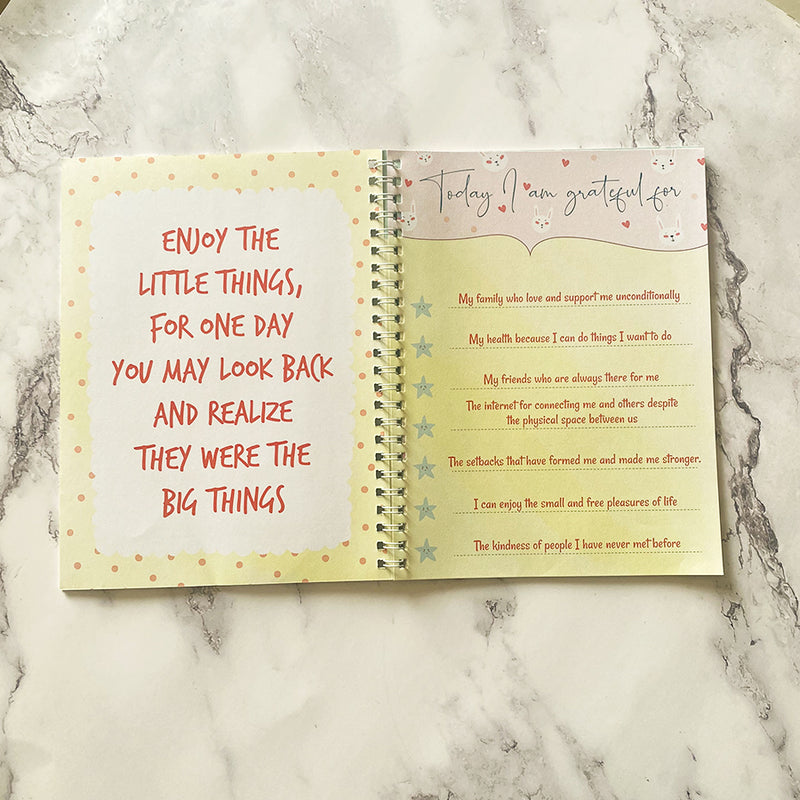 ENJOY THE
LITTLE THINGS,
FOR ONE DAY
YOU MAY LOOK BACK
AND REALIZE
THEY WERE THE
BIG THINGS
Today I am grateful for
My family who love and support me unconditionally
My health because I can do things I want to do
My friends who are always there for me
The internet for connecting me and others despite
the physical space between us
The setbacks that have formed me and made me stronger.
I can enjoy the small and free pleasures of life
The kindness of people I have never met before